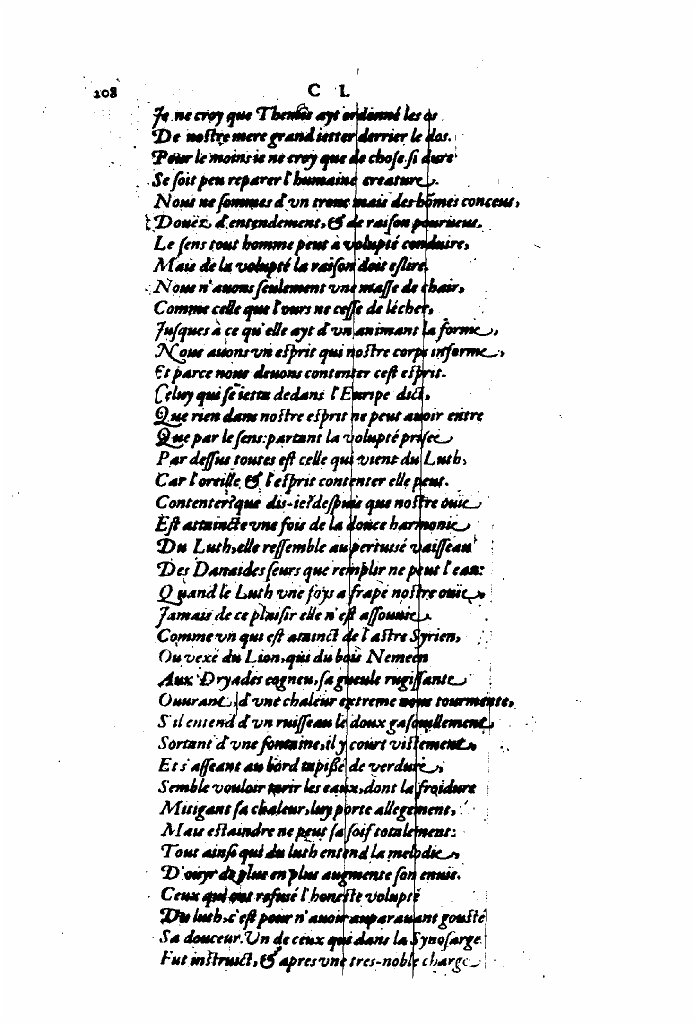 108
C L
Je ne croy que Themis ayt ordonné les os
De nostre mere grand ietter derrier le dos.
Pour le moins ie ne croy que de chose si dure
Se soit peu reparer l'humaine creature.
Nous ne sommes d'vn tronc mais des hõmes conceus,
Douëz d'entendement, & de raison pourueus.
Le sens tout homme peut à volupté conduire,
Mais de la volupté la raison doit eslire.
Nous n'auons seulement vne masse de chair,
Comme celle que l'ours ne cesse de lécher,
Jusques à ce qu'elle ayt d'vn animant la forme,
Nous auons vn esprit qui nostre corps informe,
Et parce nous deuons contenter cest esprit.
Celuy qui se ietta dedans l'Euripe dict,
Que rien dans nostre esprit ne peut auoir entre
Que par le sens: partant la volupté prisee
Par dessus toutes est celle qui vient du Luth,
Car l'oreille & l'esprit contenter elle peut.
Contenter? que dis-ie? despuis que nostre ouie
Est attaincte vne fois de la douce harmonie
Du Luth, elle ressemble au pertuisé vaisseau
Des Danaides seurs que remplir ne peut l'eau:
Quand le Luth vne foys a frapé nostre ouie,
Jamais de ce plaisir elle n'est assouuie.
Comme vn qui est attainct de l'astre Syrien,
Ou vexé du Lion, qui du bois Nemeen
Aux Dryades cogneu, sa gueule rugissante
Ouurant, d'vne chaleur extreme nous tourmente,
S'il entend d'vn ruisseau le doux gasouillement,
Sortant d'vne fontaine, il y court vistement,
Et s'asseant au bord tapißé de verdure,
Semble vouloir tarir les eaux, dont la froidure
Mitigant sa chaleur, luy porte allegement,
Mais estaindre ne peut sa soif totalement:
Tout ainsi qui du luth entend la melodie,
D'ouyr de plus en plus augmente son enuie.
Ceux qui ont refusé l'honeste volupté
Du luth, c'est pour n'auoir auparauant gousté
Sa douceur. Un de ceux qui dans la Synosarge
Fut instruict, & apres vne tres-noble charge